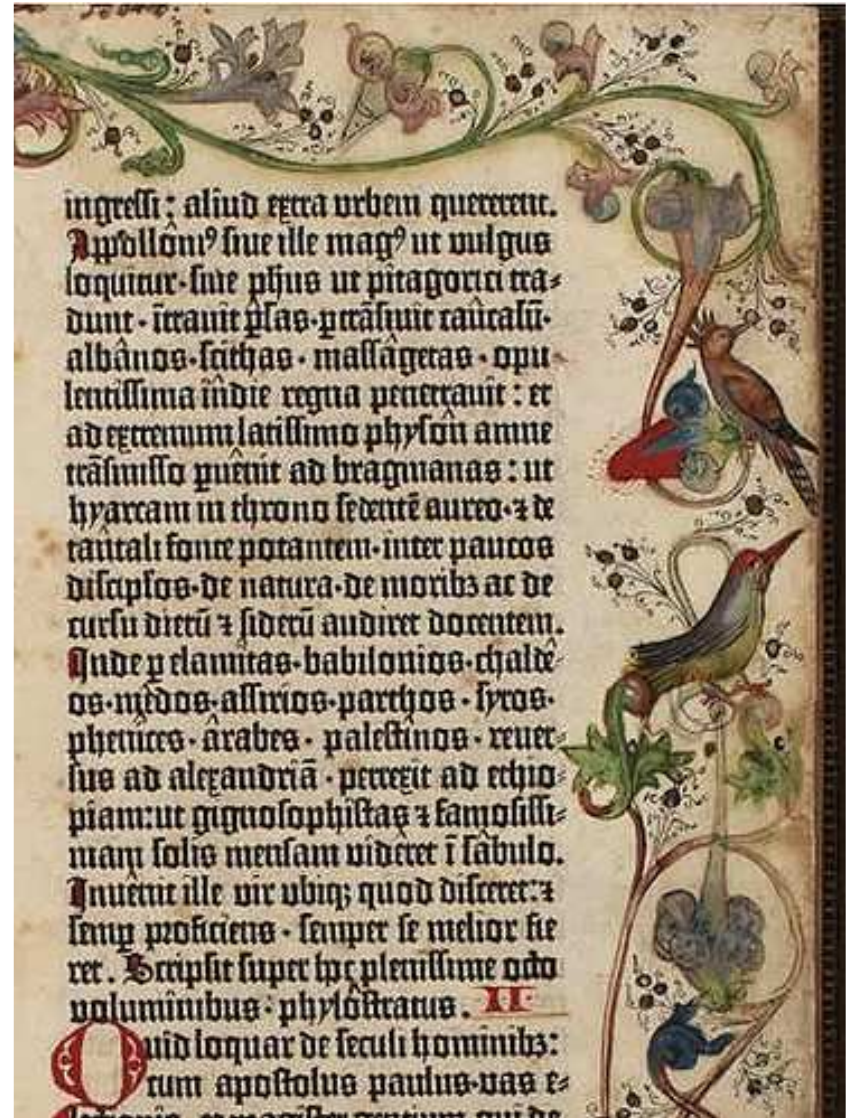 ingressi: aliud extra urbem quererent.
Appollôniꝰ siue ille magꝰ ut vulgus
loquitur·siue ph̄us ut pitagorici tra⸗
dunt·ītrauit ꝑsas·ꝑtrāsiuit caûcasū·
albânos·scithas·massâgetas·opu
lentissima îndie regna penetrauit: et
ad extremum latissimo physôn amne
trāsmisso ꝑuênit ad bragmanas: ut
hyarcam in throno sedentē aureo·⁊ de
tantali fonte potantem·inter paucos
discip̄los·de natura·de moribꝫ ac de
cursu dierū ⁊ siderū audiret docentem.
Inde ꝑ elamitas·babilonios·chaldê⸗
os·mêdos·assirios·parthos·syros·
phenices·ârabes·palestînos·reuer⸗
sus ad alexandriā·perrexit ad ethio⸗
piam: ut gignosophistas ⁊ famosissi⸗
mam solis mensam videret ī sâbulo.
Inuênit ille vir vbiqꝫ quod disceret: ⁊
semꝑ proficiens·semper se melior fie
ret. Scripsit super hoc plenissime octo
voluminibus: phylôstratus. II·
Quid loquar de seculi hominibꝫ:
cum apostolus paulus·vas e⸗
lectionis·et magister gentium qui de